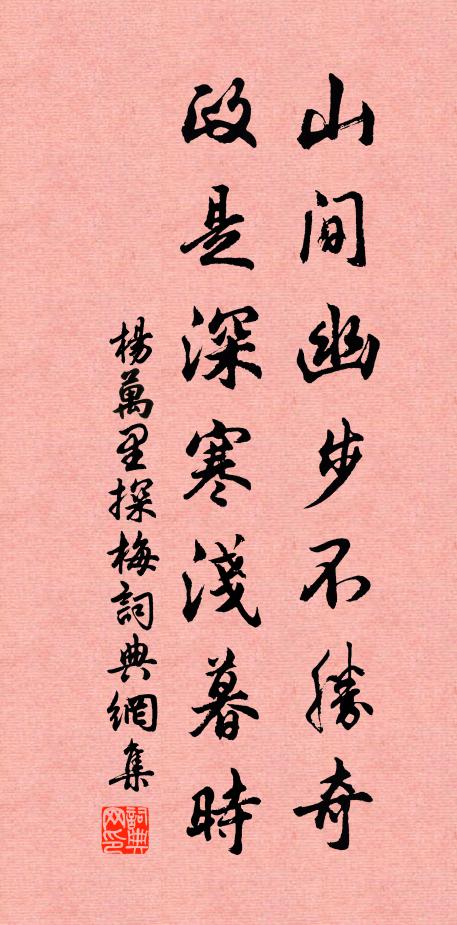 山間幽步不勝奇
政是深寒淺暮時
楊萬里探梅詞典網集
詞典网印